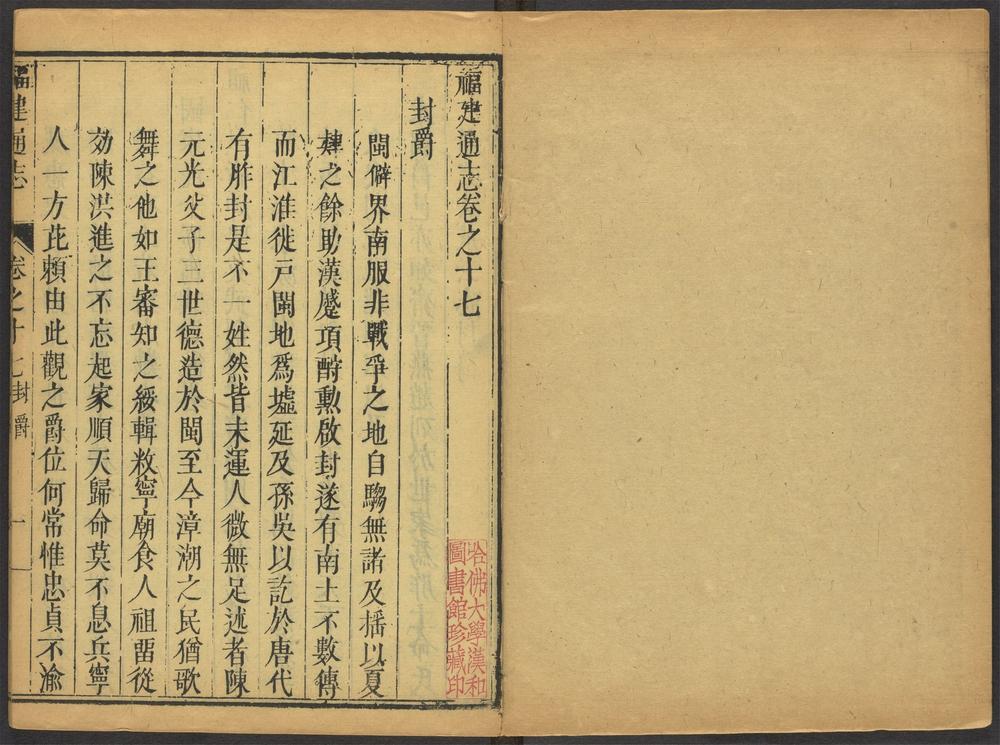 福建通志卷之十七
封爵
閩僻界南服非戰爭之地自騶無諸及搖以夏
肄之餘助漢蹙項酧勲啟封遂有南土不數傳
而江淮徙戸閩地爲墟延及孫吳以訖於唐代
有胙封是不一姓然皆末運人微無足述者陳
元光父子三世德造於閩至今漳潮之民猶歌
舞之他如王審知之綏輯敉寧廟食人祖畱從
効陳洪進之不忘起家順天歸命莫不息兵寧
人一方芘賴由此觀之爵位何常惟忠貞不渝
福建通志
卷之十七 封爵
一
哈佛大學漢和
圖書館珍藏印